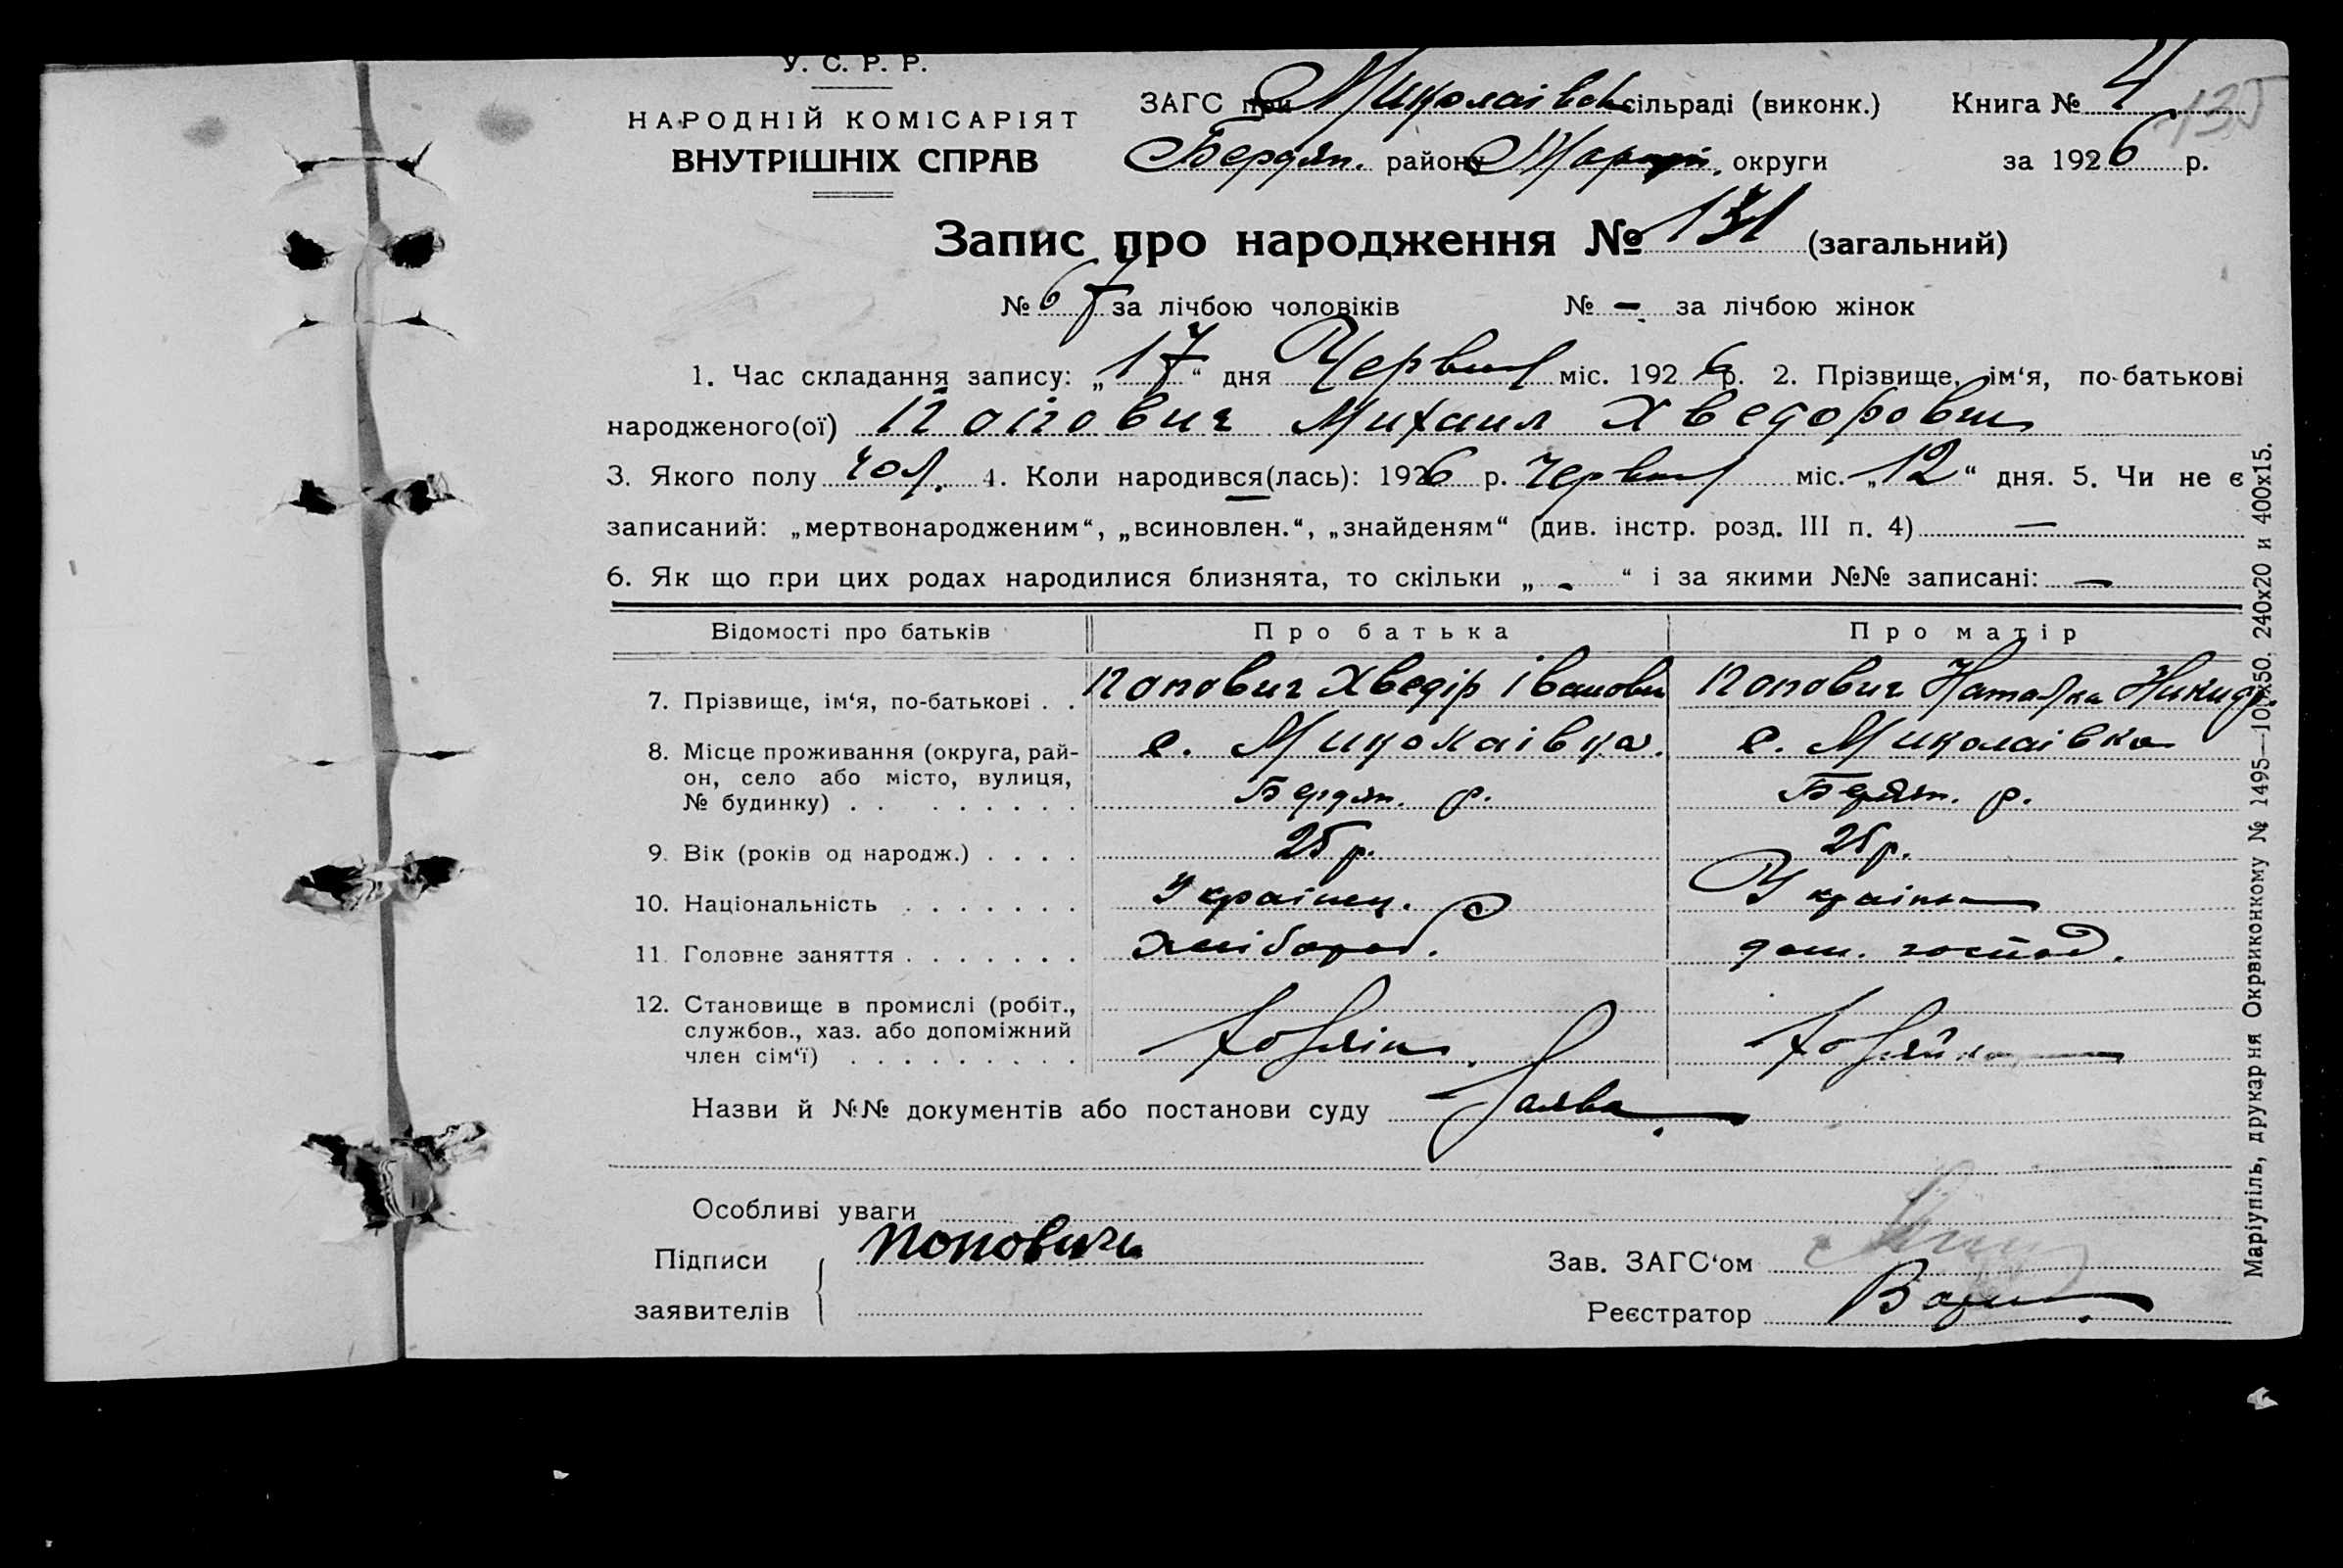 У. С. Р. Р.
НАРОДНІЙ КОМІСАРІЯТ
ВНУТРІШНІХ СПРАВ
ЗАГС при Миколаівськ сільраді (виконк.) Книга № 4
135
Бердян. району Маріуп. округи за 1926 р.
Запис про народження № 131 (загальний)
№ 67 за лічбою чоловіків № — за лічбою жінок
1. Час складання запису: „17“ дня Червня міс. 1926 р. 2. Прізвище, ім‘я, по-батькові
народженого(ої) Попович Михаил Хведорович
3. Якого полу чол. 4. Коли народився(лась): 1926 р. Червня міс. „12“ дня. 5. Чи не є
записаний: „мертвонародженим“, „всиновлен.“, „знайденям“ (див. інстр. розд. III п. 4) —
6. Як що при цих родах народилися близнята, то скільки „ - “ і за якими №№ записані: —
Відомості про батьків Про батька Про матір
7. Прізвище, ім‘я, по-батькові . . Попович Хведір Іванович Попович Наталка Никиф.
8. Місце проживання (округа, рай- с. Миколаівка. с. Миколаівка
он, село або місто, вулиця,
№ будинку) . . . . . . . . . Бердян. р. Бердян. р.
9. Вік (років од народж.) . . . . 25 р. 25 р.
10. Національність . . . . . . . Украінец. Украінка
11. Головне заняття . . . . . . . Хлібороб. дом. господ.
12. Становище в промислі (робіт.,
службов., хаз. або допоміжний
член сім‘ї) . . . . . . . . . Хозяін. Хозяйка
Назви й №№ документів або постанови суду Заява.
Особливі уваги
Підписи Попович
заявителів
Зав. ЗАГС‘ом
Реєстратор
Маріупіль, друкарня Окрвиконкому № 1495—100х50. 240х20 и 400х15.